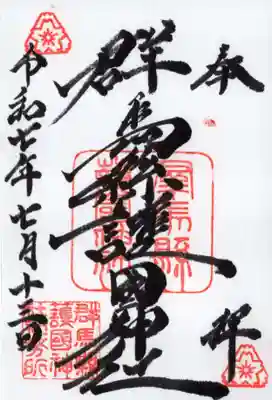 奉拝
群馬縣護國神社
令和七年七月十三日
群馬縣
護國神
社務所